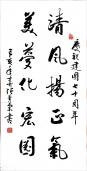 慶祝建國七十周年
清風揚正氣
美夢化宏圖
己亥年